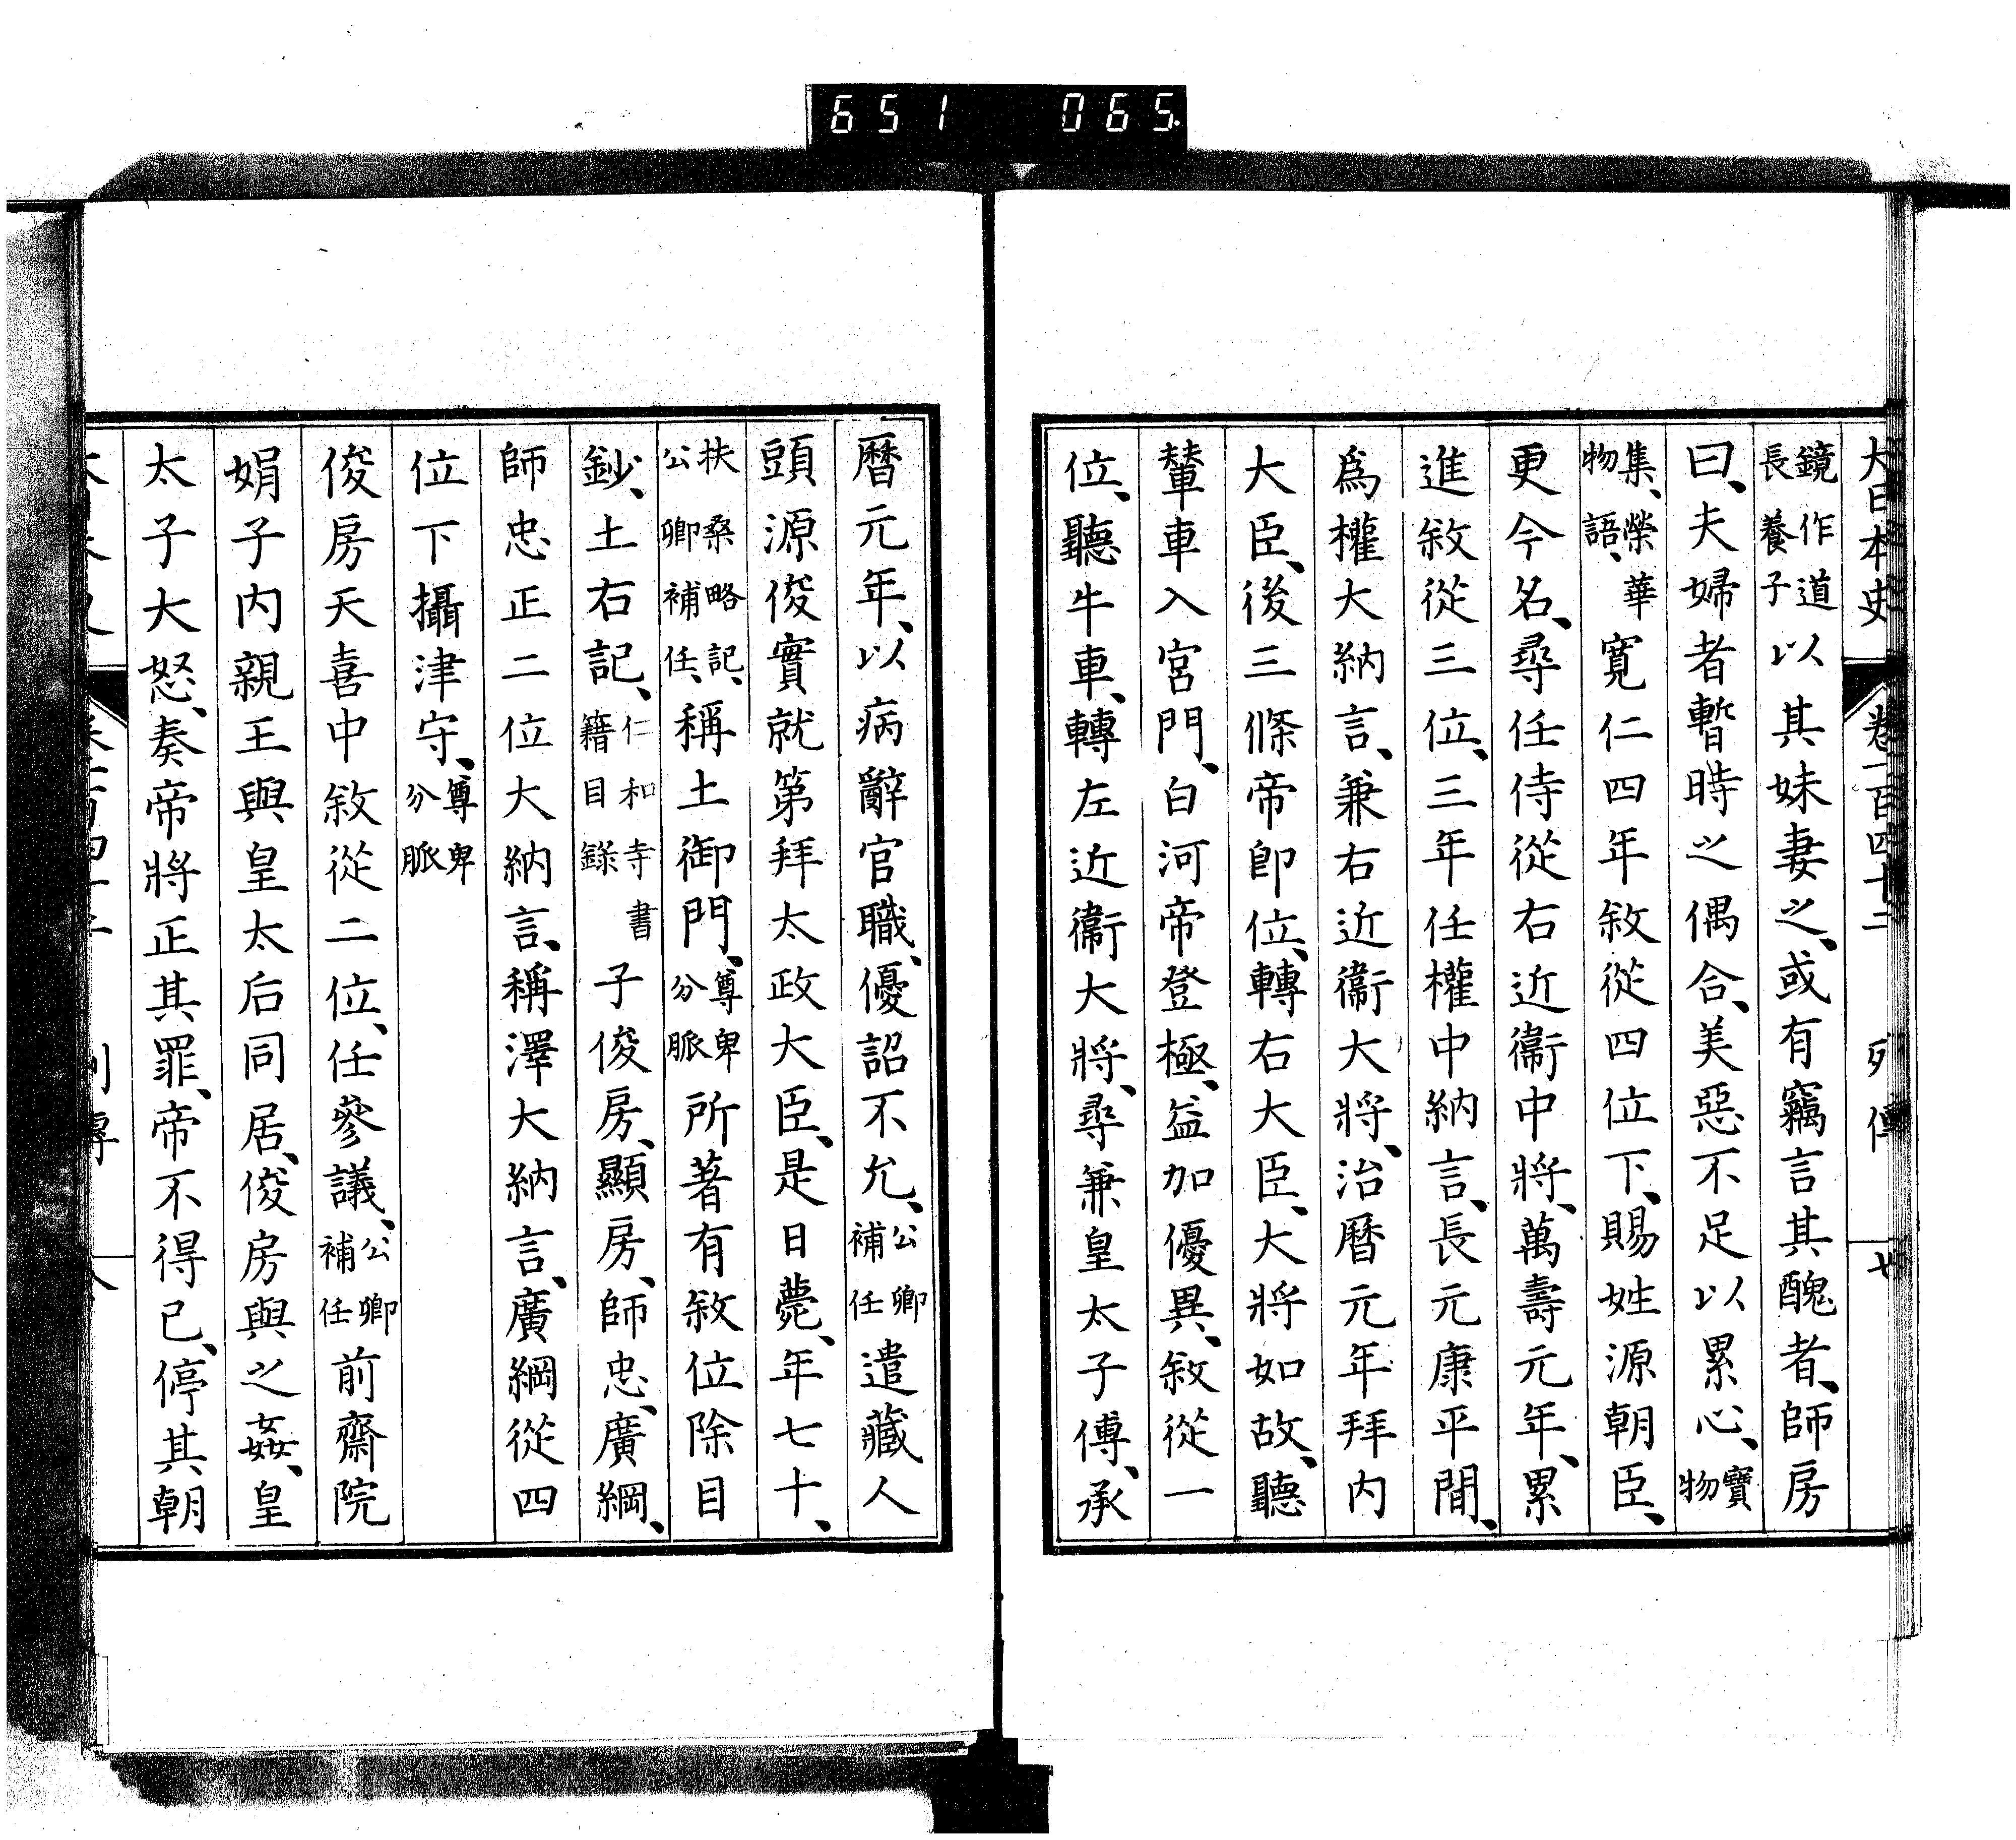 651 065
大日本史 卷一百四十二 列傳
鏡作道長養子以其妹妻之、或有竊言其醜者、師房
曰、夫婦者暫時之偶合、美惡不足以累心、寶物
集、榮華物語、寬仁四年敘從四位下、賜姓源朝臣、
更今名、尋任侍從右近衞中將、萬壽元年、累
進敘從三位、三年任權中納言、長元康平間、
爲權大納言、兼右近衞大將、治曆元年拜內
大臣、後三條帝卽位、轉右大臣、大將如故、聽
輦車入宮門、白河帝登極、益加優異、敘從一
位、聽牛車、轉左近衞大將、尋兼皇太子傅、承
曆元年、以病辭官職、優詔不允、公卿補任遣藏人
頭源俊實就第拜太政大臣、是日薨、年七十、
扶桑略記、公卿補任、稱土御門、尊卑分脈所著有敘位除目
鈔、土右記、仁和寺書籍目錄子俊房、顯房、師忠、廣綱、
師忠正二位大納言、稱澤大納言、廣綱從四
位下攝津守、尊卑分脈
俊房天喜中敘從二位、任參議、公卿補任前齋院
娟子內親王與皇太后同居、俊房與之姦、皇
太子大怒、奏帝將正其罪、帝不得已、停其朝